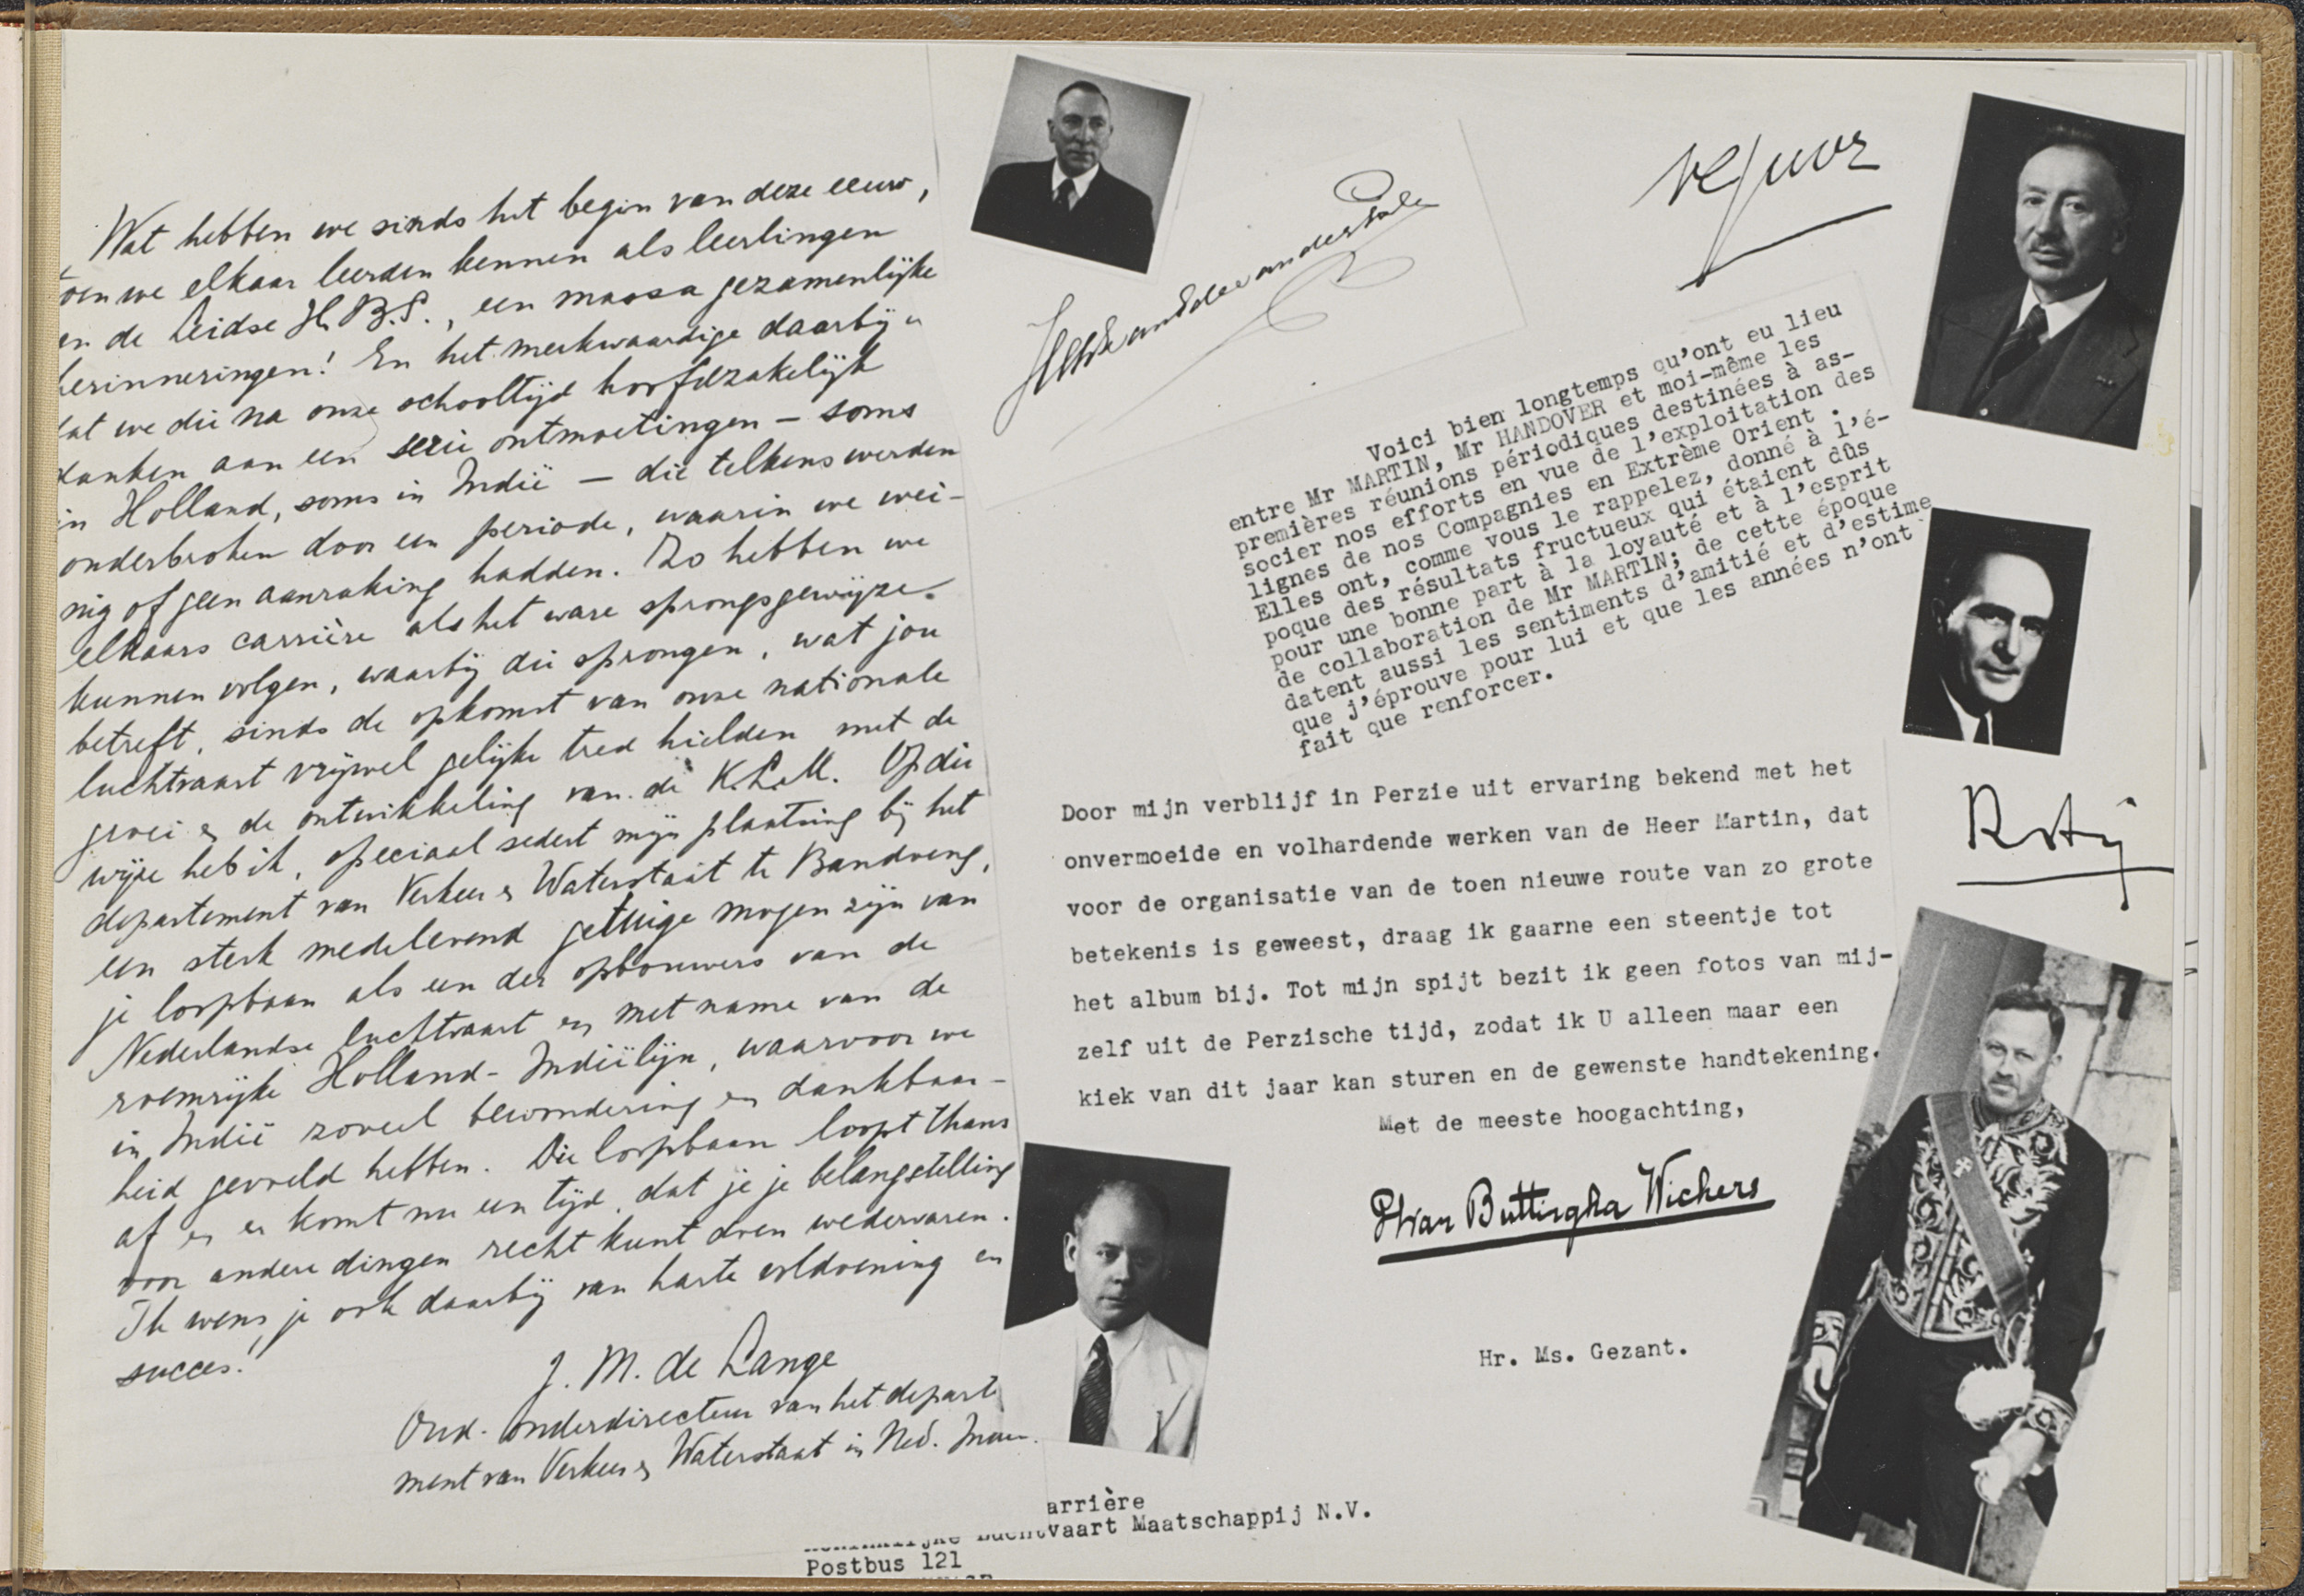 Wat hebben we sinds het begin van deze eeuw,
toen we elkaar leerden kennen als leerlingen
an de Leidse H.B.S., een massa gezamenlijke
herinneringen! En het merkwaardige daarbij is
dat we die na onze schooltijd hoofdzakelijk
danken aan een serie ontmoetingen – soms
in Holland, soms in Indië – die telkens werden
onderbroken door een periode, waarin we wei-
nig of geen aanraking hadden. Zo hebben we
elkaars carrière als het ware sprongsgewijze
kunnen volgen, waarbij die sprongen, wat jou
betreft, sinds de opkomst van onze nationale
luchtvaart vrijwel gelijke tred hielden met de
groei en de ontwikkeling van de K.L.M. Op die
wijze heb ik, speciaal sedert mijn plaatsing bij het
departement van Verkeer en Waterstaat te Bandoeng,
een sterk medelevend getuige mogen zijn van
je loopbaan als een der opbouwers van de
Nederlandse luchtvaart en met name van de
roemrijke Holland-Indiëlijn, waarvoor we
in Indië zoveel bewondering en dankbaar-
heid gevoeld hebben. Die loopbaan loopt thans
af en er komt nu een tijd, dat je je belangstelling
voor andere dingen recht kunt doen wedervaren.
Ik wens je ook daarbij van harte voldoening en
succes!
J. M. de Lange
Oud-onderdirecteur van het departe
ment van Verkeer en Waterstaat in Ned. Indië.
Voici bien longtemps qu'ont eu lieu
entre Mr MARTIN, Mr HANDOVER et moi-même les
premières réunions périodiques destinées à as-
socier nos efforts en vue de l'exploitation des
lignes de nos Compagnies en Extrème Orient .
Elles ont, comme vous le rappelez, donné à l'é-
poque des résultats fructueux qui étaient dûs
pour une bonne part à la loyauté et à l'esprit
de collaboration de Mr MARTIN; de cette époque
datent aussi les sentiments d'amitié et d'estime
que j'éprouve pour lui et que les années n'ont
fait que renforcer.
Door mijn verblijf in Perzie uit ervaring bekend met het
onvermoeide en volhardende werken van de Heer Martin, dat
voor de organisatie van de toen nieuwe route van zo grote
betekenis is geweest, draag ik gaarne een steentje tot
het album bij. Tot mijn spijt bezit ik geen fotos van mij-
zelf uit de Perzische tijd, zodat ik U alleen maar een
kiek van dit jaar kan sturen en de gewenste handtekening.
Met de meeste hoogachting,
van Buttingha Wichers
Hr. Ms. Gezant.
arrière
Luchtvaart Maatschappij N.V.
Postbus 121